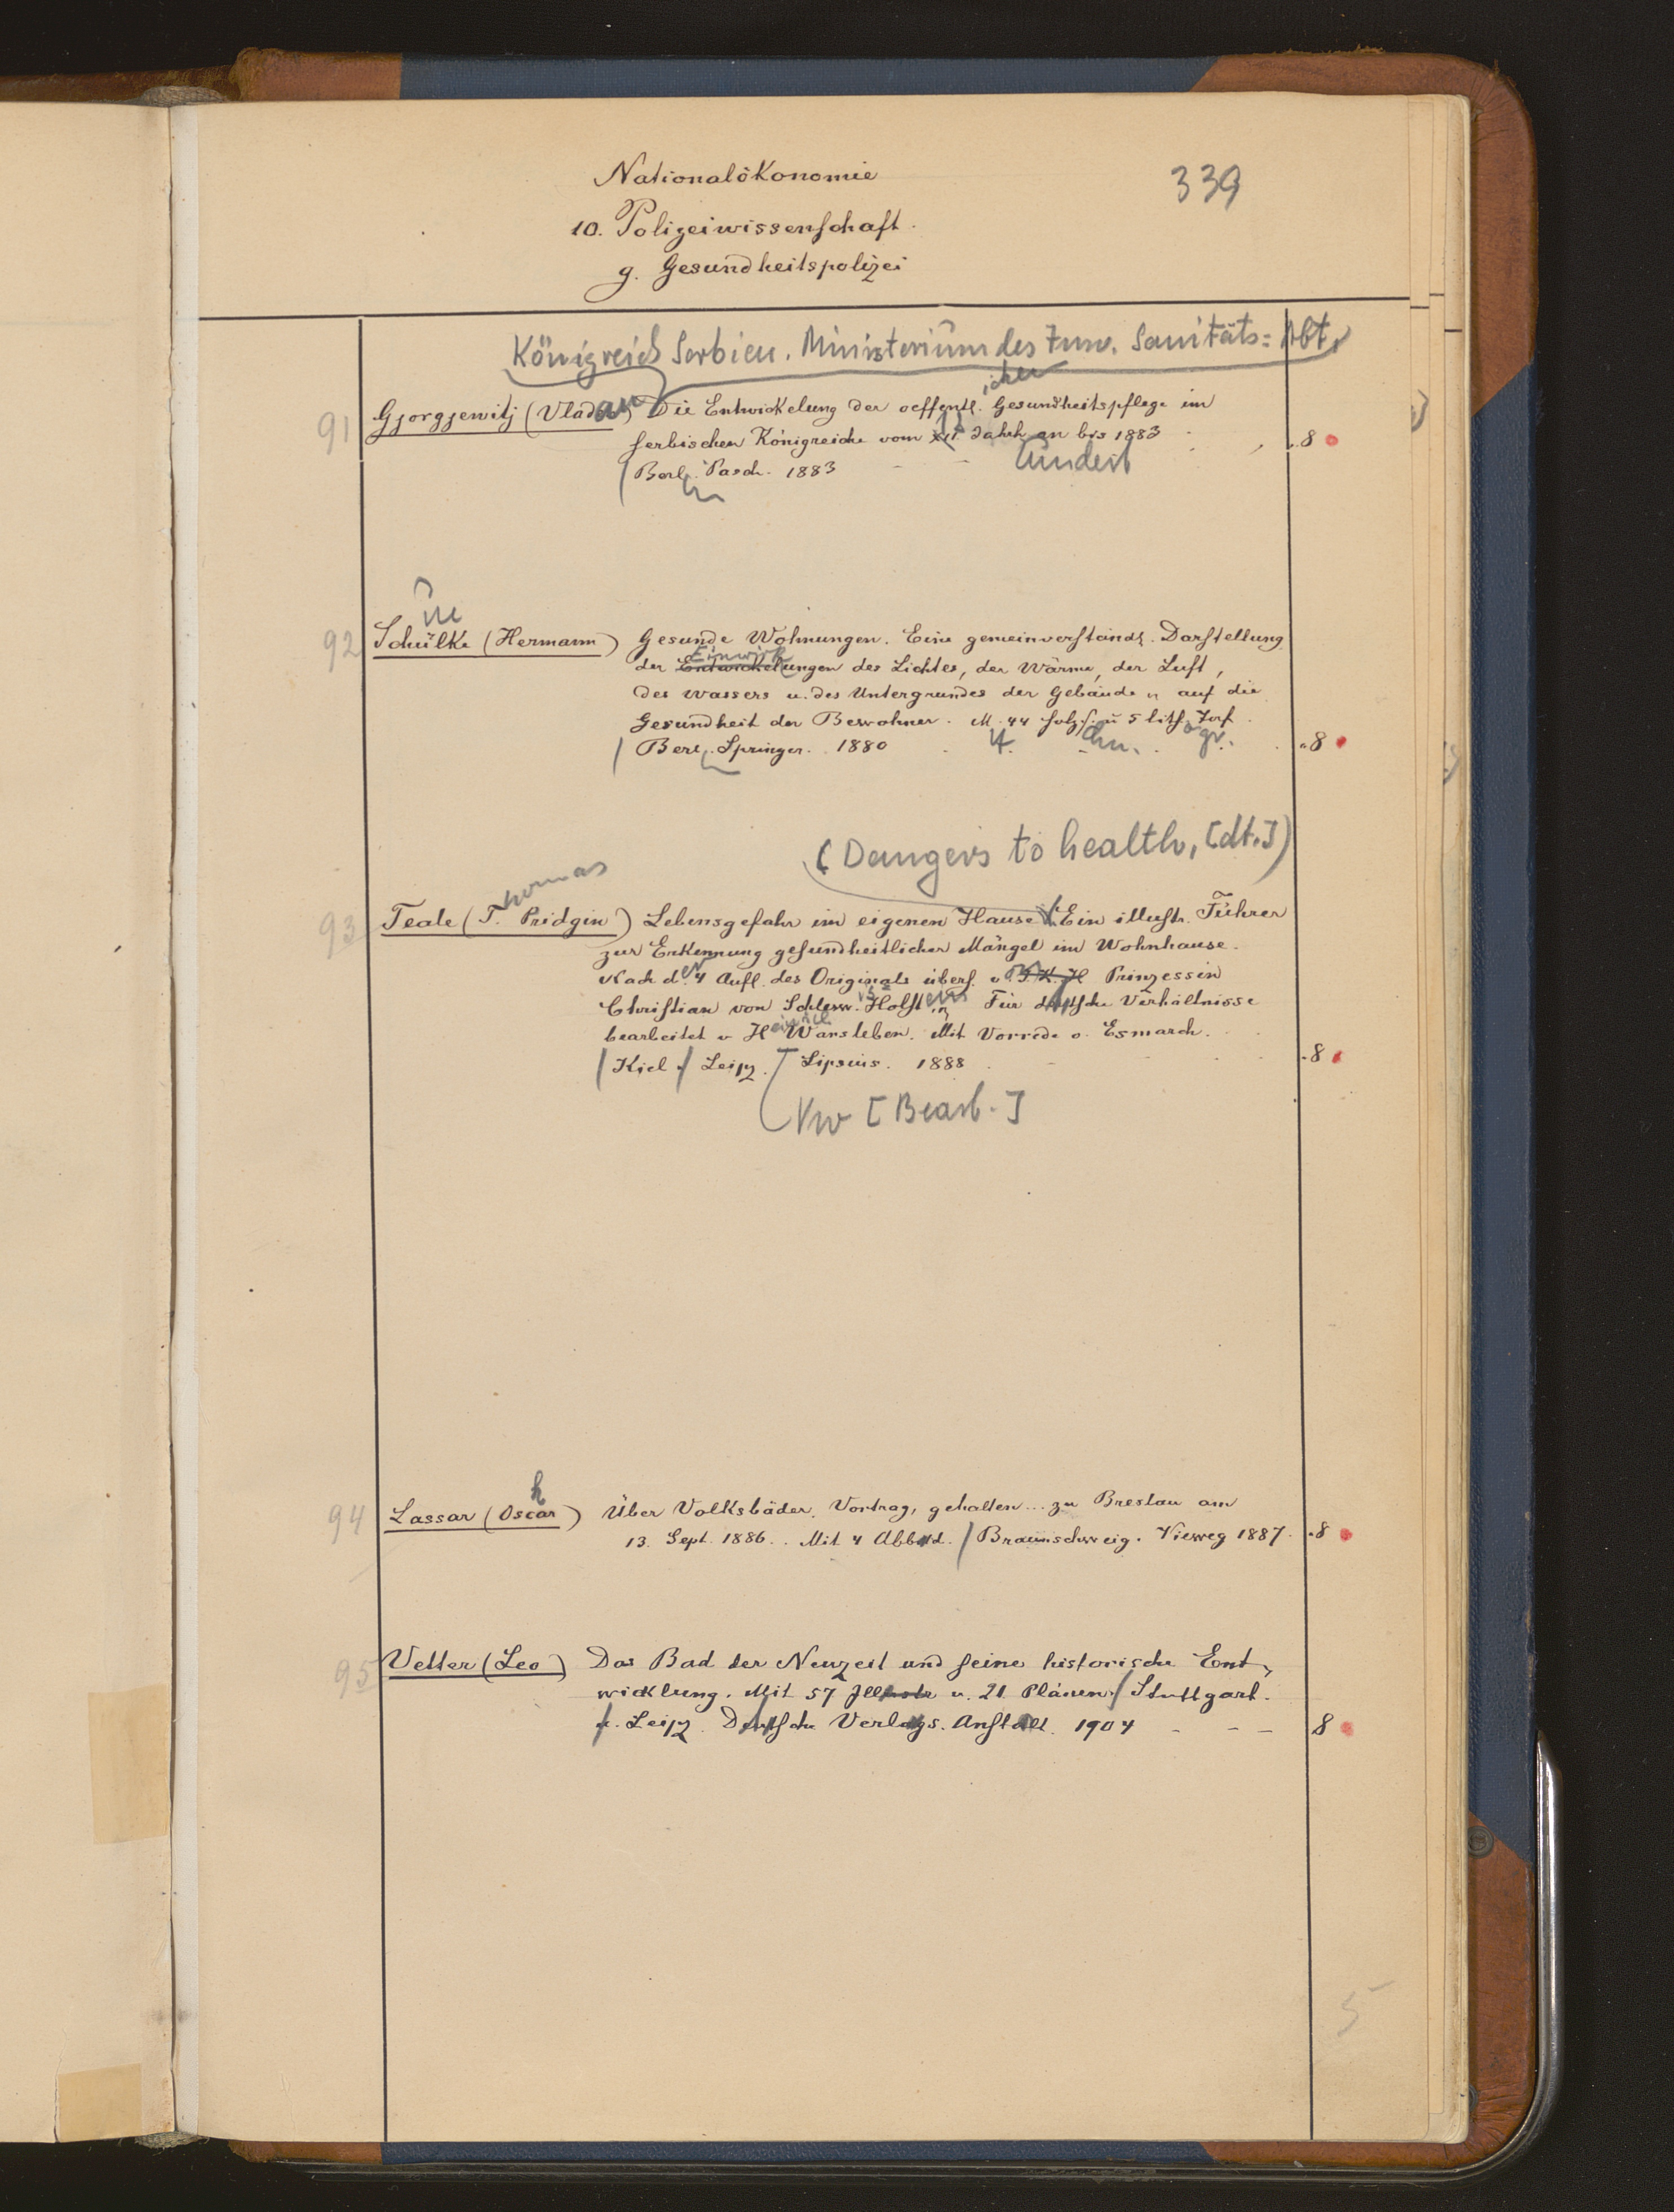 Nationalökonomie
339
10. Polizeiwissenschaft.
g. Gesundheitspolizei
Königreich Serbien. Ministerium des Inn. Sanitäts=Abt.
91 Gjorgjewitj (Vladan) Die Entwickelung der oeffentl.ichen Gesundheitspflege im
serbischen Königreiche vom Jahrh an bis 1883 8
undert
Berlin Pasch. 1883
92 Schülke (Hermann) Gesunde Wohnungen. Eine gemeinverständl. Darstellung
Einwirk
der Entwickelungen des Lichtes, der Wärme, der Luft,
des Wassers u. des Untergrundes der Gebäude auf die
Gesundheit der Bewohner. M. 44 Holzs. u 5 lith.
Berl. Springer. 1880 8
(Dangers to health, [dt.])
Thomas
93 Teale (T. Pridgin) Lebensgefahr im eigenen Hause. Ein illustr. Führer
zur Erkennung gesundheitlicher Mängel im Wohnhause.
Nach der 4 Aufl. des Originals übers. v I. K. H Prinzessin
Christian von Schlesw. Holstein Für deutsche Verhältnisse
bearbeitet v Heinrich Wansleben. Mit Vorrede v. Esmarch.
Kiel Leipz. Lipsius. 1888 8
Vw [Bearb.]
94 Lassar (Oscar) Über Volksbäder. Vortrag, gehalten... zu Breslau am
13. Sept. 1886. Mit 4 Abbild. Braunschweig. Vieweg 1887. 8
95 Vetter (Leo) Das Bad der Neuzeit und seine historische Ent-
wicklung. Mit 57 Illustr u. 21 Plänen. Stuttgart.
u. Leipz. Deutsche Verlags. Anstalt. 1904 - - - 8
5